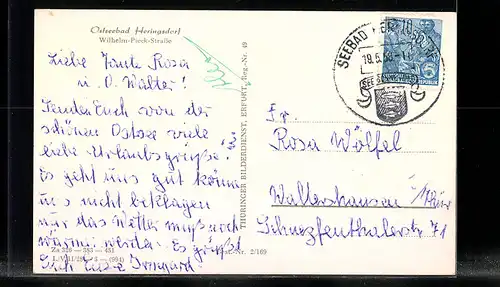 Ostseebad Heringsdorf
Wilhelm-Pieck-Straße
Liebe Tante Rosa
u. O. Walter!
Senden Euch von der
schönen Ostsee viele
liebe Urlaubsgrüße!
Es geht uns gut können
uns nicht beklagen
nur das Wetter muß noch
wärmer werden. Es grüßt
Euch Eure Irmgard.
THÜRINGER BILDERDIENST, ERFURT, Reg.-Nr. 49
SEEBAD
19.5.
Fr.
Rosa Wölfel
Waltershausen/Thür
Schnepfenthalerstr. 71
Nr. 2/169